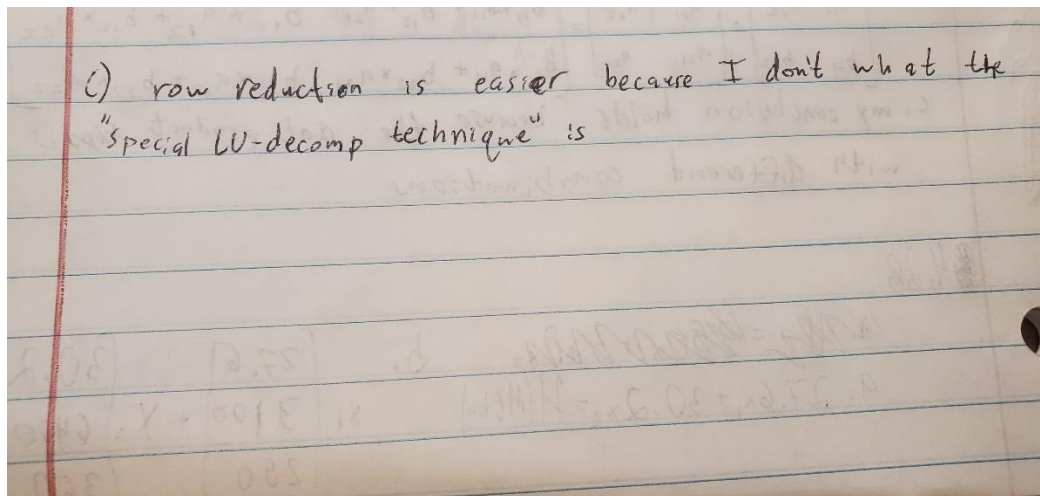 C) row reduction is easier because I don't what the
"special LU-decomp technique" is